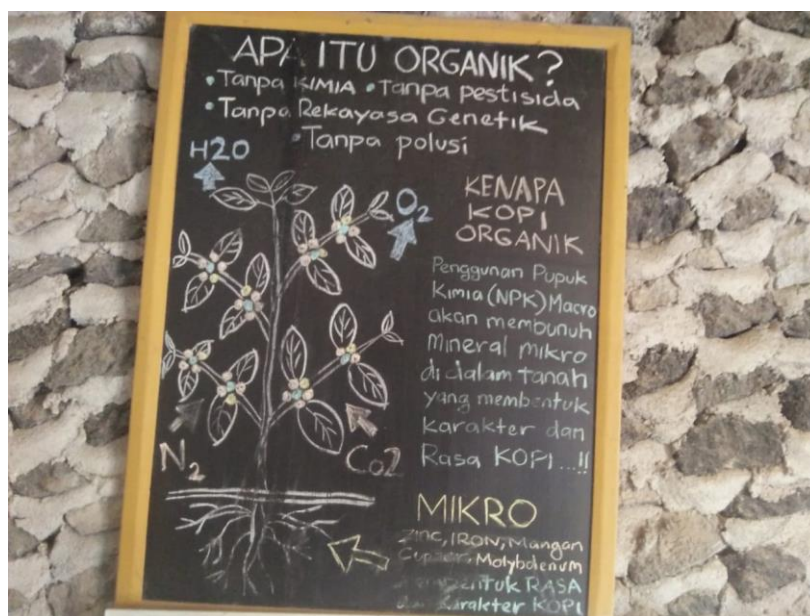 APA ITU ORGANIK?
• Tanpa KIMIA • Tanpa pestisida
• Tanpa Rekayasa Genetik
• Tanpa polusi
H2O
O2
KENAPA
KOPI
ORGANIK
Penggunan Pupuk
Kimia (NPK) Macro
akan membunuh
Mineral mikro
di dalam tanah
yang membentuk
karakter dan
Rasa KOPI...!!
N2
Co2
MIKRO
Zinc, IRON, Mangan
Molybdenum
RASA
Karakter KOPI